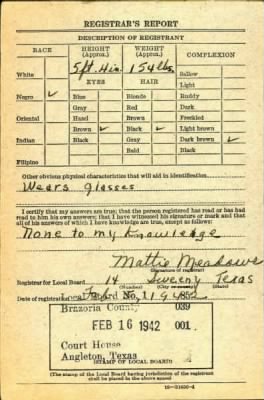 REGISTRAR'S REPORT
DESCRIPTION OF REGISTRANT
RACE HEIGHT (Approx.) WEIGHT (Approx.) COMPLEXION
White 5 ft. 4 in. 154 lbs. Sallow
EYES HAIR Light
Negro ✓ Blue Blonde Ruddy
Gray Red Dark
Oriental Hazel Brown Freckled
Brown ✓ Black ✓ Light brown
Indian Black Gray Dark brown ✓
Bald Black
Filipino
Other obvious physical characteristics that will aid in identification
Wears glasses
I certify that my answers are true; that the person registered has read or has had
read to him his own answers; that I have witnessed his signature or mark and that
all of his answers of which I have knowledge are true, except as follows:
None to my Knowledge
Mattie Meadows
(Signature of registrar)
Registrar for Local Board 14 Sweeny Texas
(Number) (City or county)
Date of registration
Brazoria County 039
FEB 16 1942 001
Court House
Angleton, Texas
(STAMP OF LOCAL BOARD)
(The stamp of the Local Board having jurisdiction of the registrant
shall be placed in the above space)